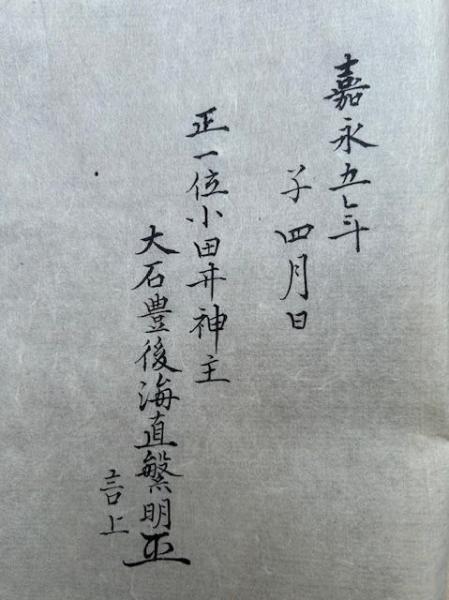 嘉永五年
子四月日
正一位小田井神主
大石豊後海直繁明
言上